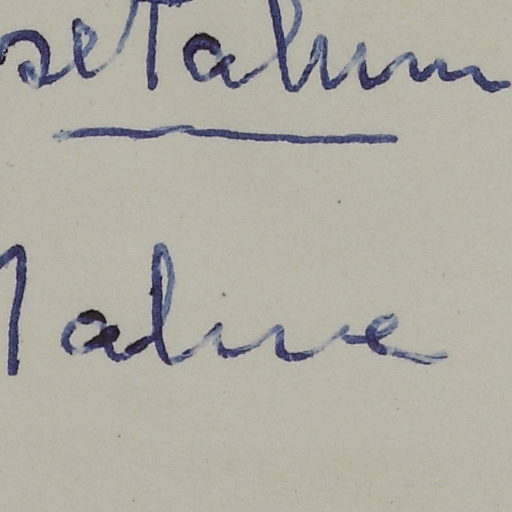 setalum
alve